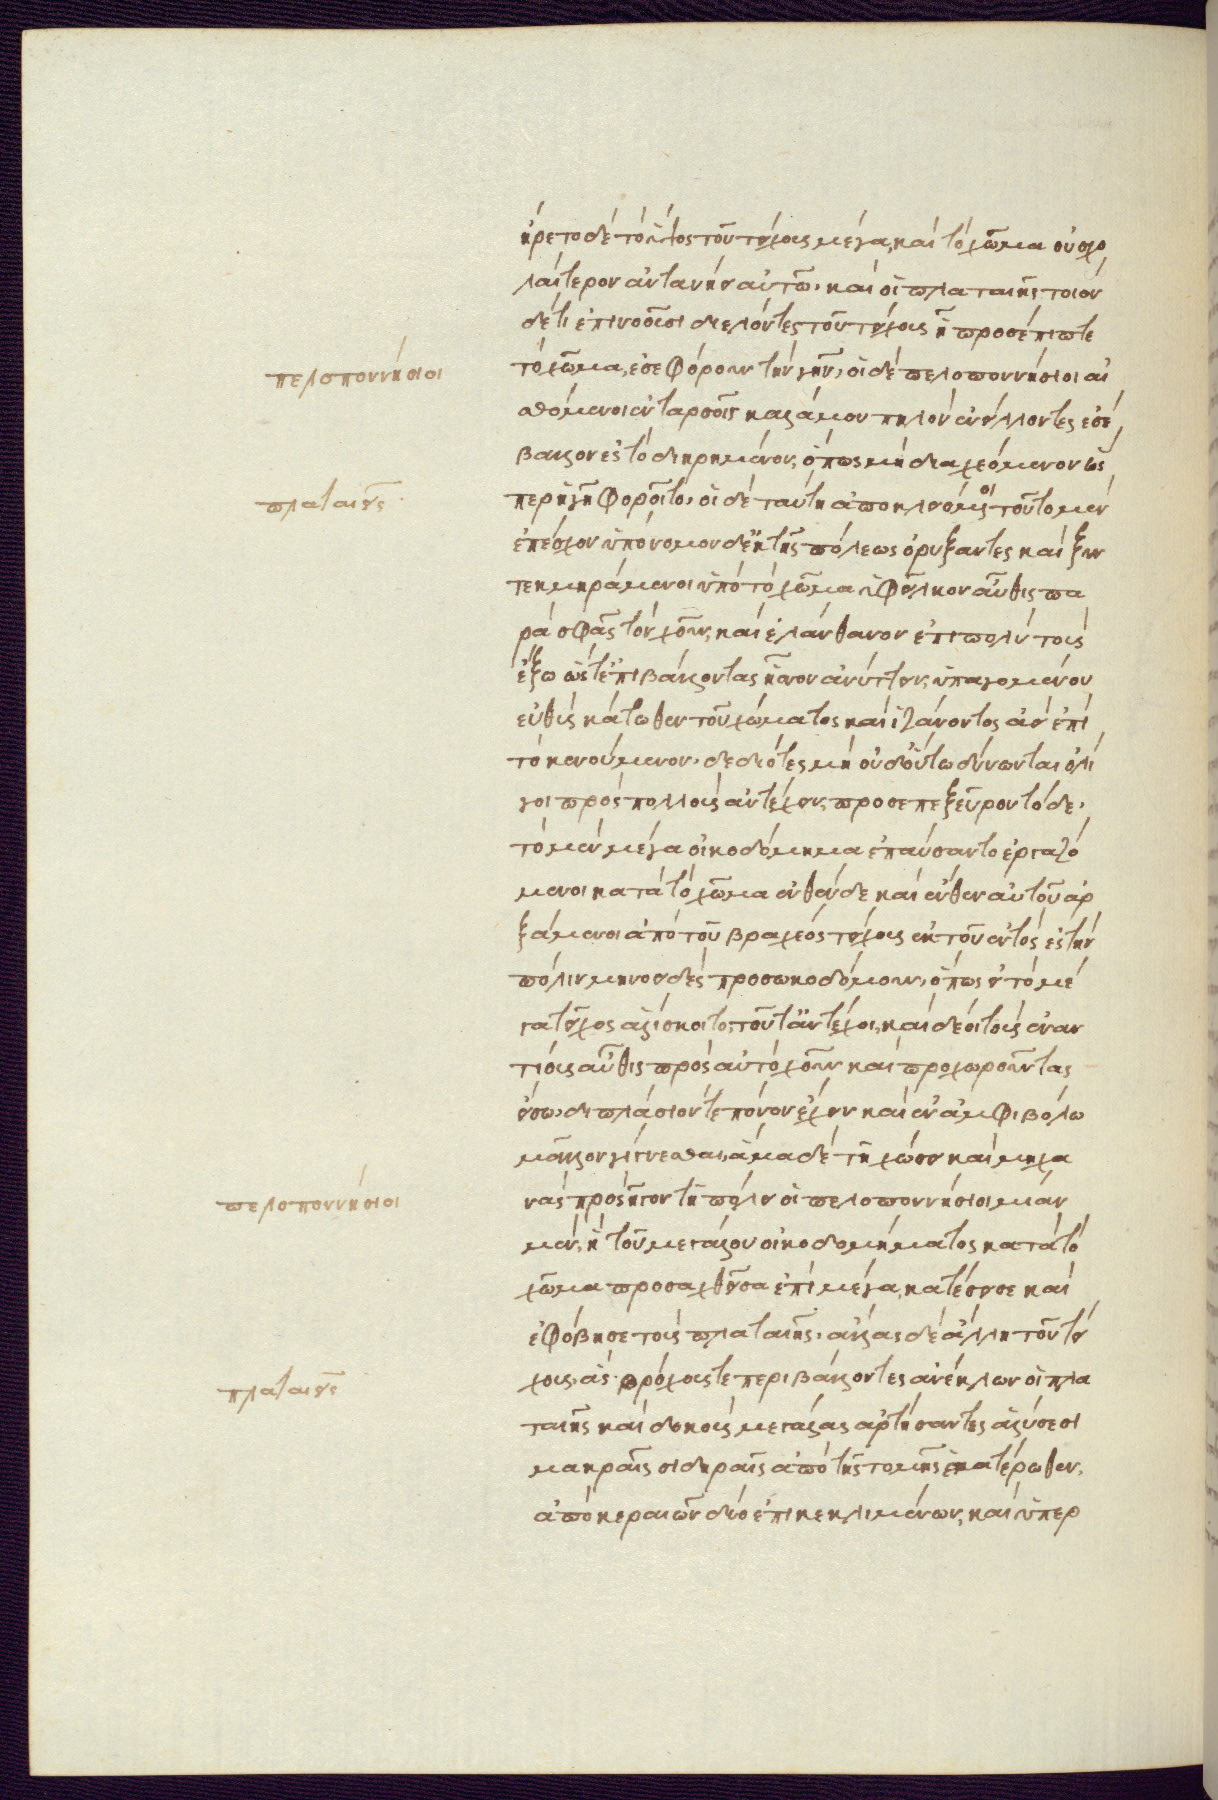 ᾔρετο δὲ τὸ ὕψος τοῦ τείχους μέγα, καὶ τὸ χῶμα οὐ σχο
λαίτερον ἀντανῄει αὐτῶ· καὶ οἱ πλαταιῆς τοιόν
δέ τι ἐπινοοῦσι διελόντες τοῦ τείχους ᾗ προσέπιπτε
τὸ χῶμα, ἐσεφόρουν τὴν γῆν, οἱ δὲ πελοποννήσιοι αἰ
πελοποννήσιοι
σθόμενοι ἐν ταρσοῖς καλάμου πηλὸν ἐνείλλοντες ἐσέ
βαλλον ἐς τὸ διῃρημένον, ὅπως μὴ διαχεόμενον ὥς
περ ἡ γῆ φοροῖτο, οἱ δὲ ταύτῃ ἀποκλειόμενοι τοῦτο μὲν
πλαταιεῖς
ἐπέσχον ὑπόνομον δ' ἐκ τῆς πόλεως ὀρύξαντες καὶ ξυν
τεκμηράμενοι ὑπὸ τὸ χῶμα ὑφεῖλκον αὖθις πα
ρὰ σφᾶς τὸν χοῦν, καὶ ἐλάνθανον ἐπὶ πολὺ τοὺς
ἔξω ὥστ' ἐπιβάλλοντας ἧσσον ἀνύτειν, ὑπαγομένου
εὐθὺς κάτωθεν τοῦ χώματος καὶ ἱζάνοντος ἀεὶ ἐπὶ
τὸ κενούμενον· δεδιότες μὴ οὐδ' οὕτω δύνωνται ὀλί
γοι πρὸς πολλοὺς ἀντέχειν, προσεπεξεῦρον τόδε·
τὸ μὲν μέγα οἰκοδόμημα ἐπαύσαντο ἐργαζό
μενοι κατὰ τὸ χῶμα ἐνθένδε καὶ ἔνθεν αὐτοῦ ἀρ
ξάμενοι ἀπὸ τοῦ βραχέος τείχους ἐκ τοῦ ἐντὸς ἐς τὴν
πόλιν μηνοειδὲς προσωκοδόμουν, ὅπως εἰ τὸ μέ
γα τεῖχος ἁλίσκοιτο, τοῦτ' ἀντέχοι, καὶ δέοι τοὺς ἐναν
τίους αὖθις πρὸς αὐτὸ χοῦν καὶ προχωροῦντας
ἔσω, διπλάσιόν τε πόνον ἔχειν καὶ ἐν ἀμφιβόλω
μᾶλλον γίγνεσθαι, ἅμα δὲ τῇ χώσει καὶ μηχα
νὰς προσῆγον τῇ πόλει οἱ πελοποννήσιοι μίαν
πελοποννήσιοι
μὲν, ἣ τοῦ μεγάλου οἰκοδομήματος κατὰ τὸ
χῶμα προσαχθεῖσα ἐπὶ μέγα, κατέσεισε καὶ
ἐφόβησε τοὺς πλαταιῆς· ἄλλας δὲ ἄλλῃ τοῦ τεί
χους, ἃς βρόχους τε περιβάλλοντες ἀνέκλων οἱ πλα
πλαταιεῖς
ταιῆς καὶ δοκοὺς μεγάλας ἀρτήσαντες ἁλύσεσι
μακραῖς σιδηραῖς ἀπὸ τῆς τομῆς ἑκατέρωθεν,
ἀπὸ κεραιῶν δύο ἐπικεκλιμένων, καὶ ὑπερ